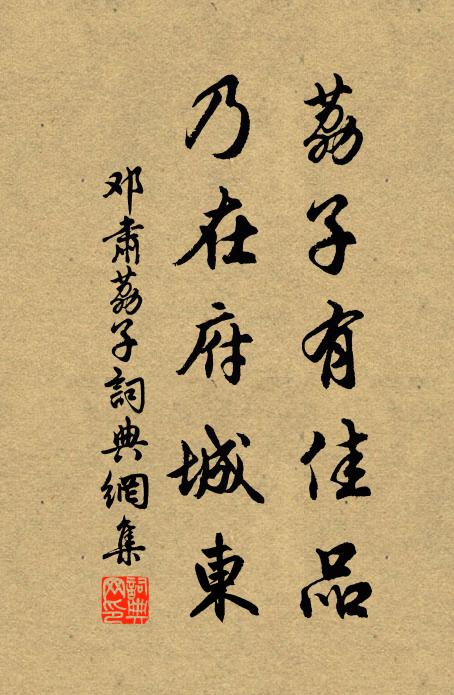 荔子有佳品
乃在府城東
邓肅荔子詞典網集
詞典网印